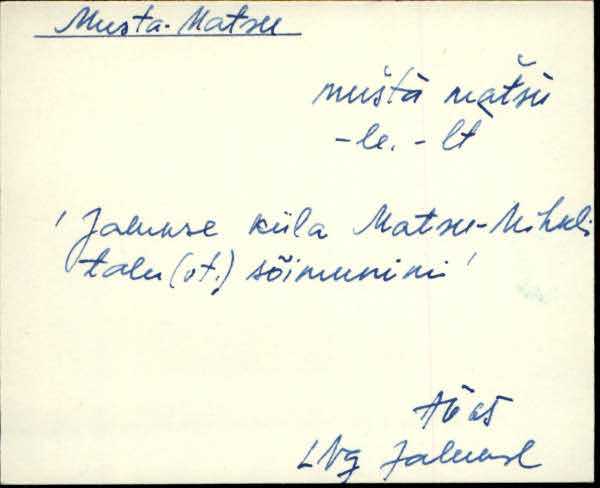 Musta-Matsu
muštà matšù
-le. -lt
'Jaluse küla Matsu-Mihkli
talu (vt.) sõimunimi'
LNg Jaluse